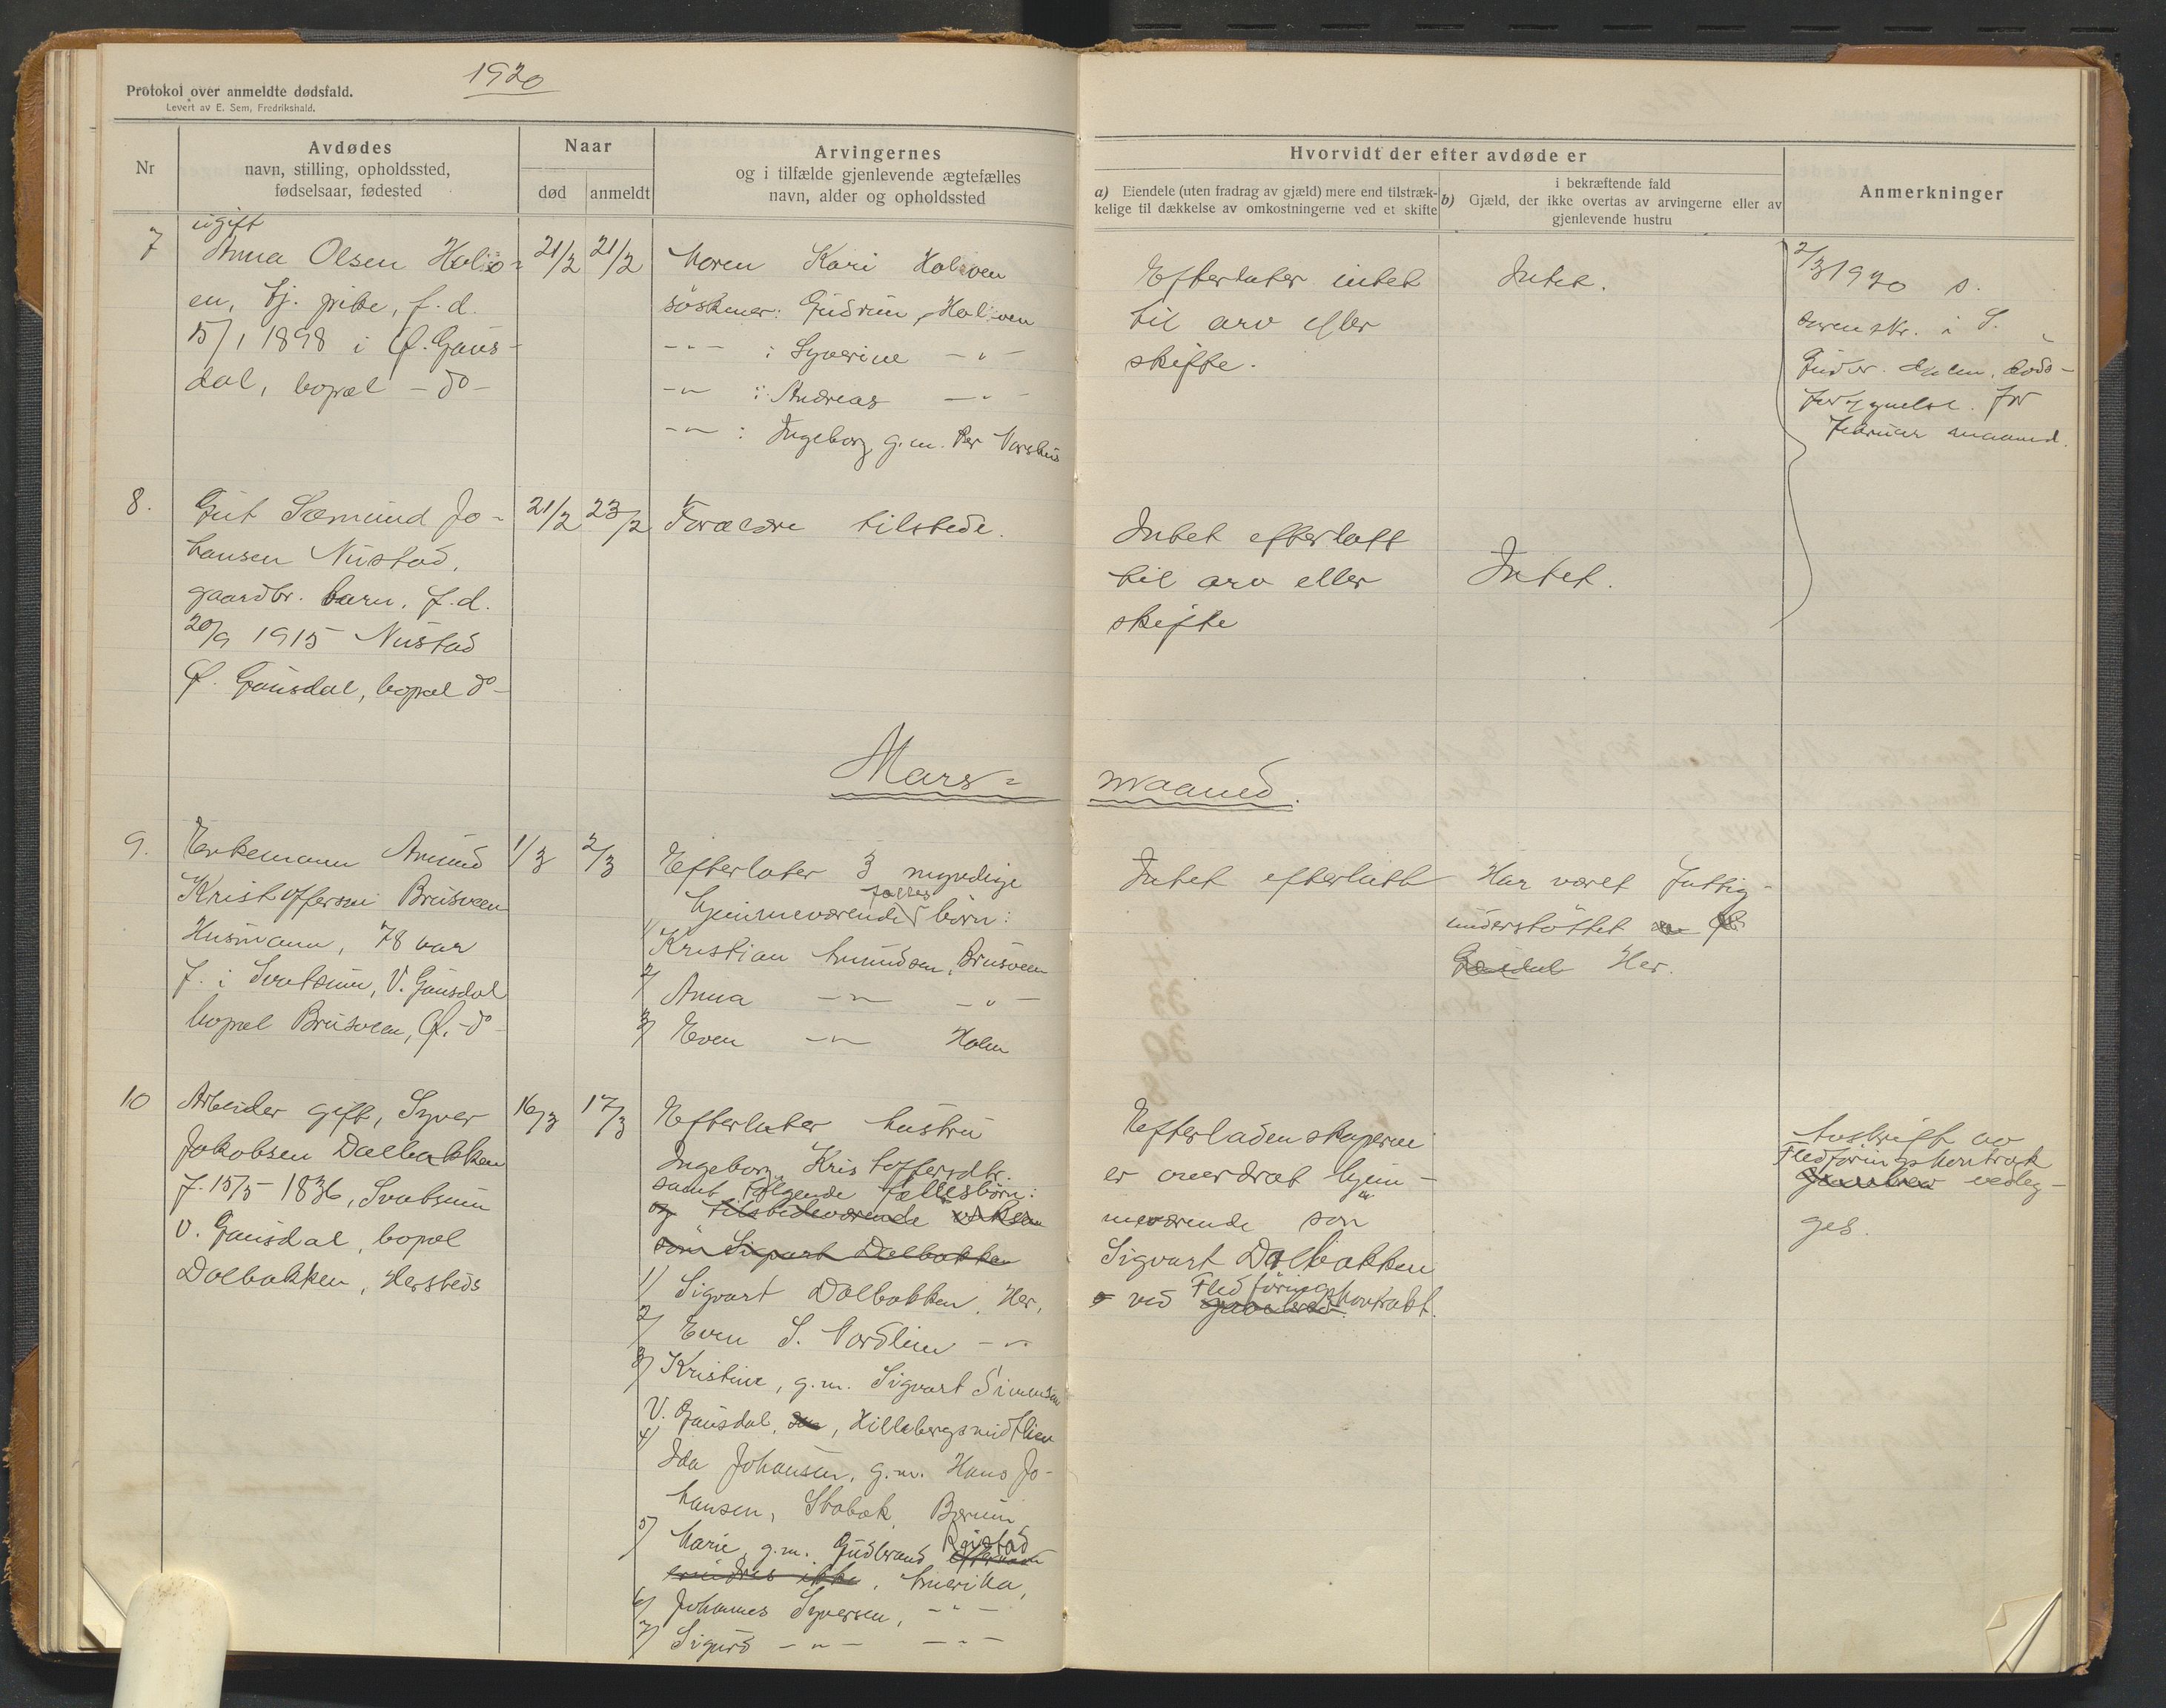 1920
Protokol over anmeldte dødsfald.
Levert av E. Sem, Fredrikshald.
Nr
Avdødes
navn, stilling, opholdssted,
fødselsaar, fødested
Naar
død
anmeldt
Arvingernes
og i tilfælde gjenlevende ægtefælles
navn, alder og opholdssted
Hvorvidt der efter avdøde er
a) Eiendele (uten fradrag av gjæld) mere end tilstræk-
kelige til dækkelse av omkostningerne ved et skifte
i bekræftende fald
b) Gjæld, der ikke overtas av arvingerne eller av
gjenlevende hustru
Anmerkninger
7
ugift
Anna Olsen
en, tj. pike, f. d.
15/1 1898 i Ø. Gaus-
dal, bopæl - do -
21/2
21/2
Moren Kari
søskener: Gudrun
- " - : Syverine - " -
- " - : Andreas - " -
- " - : Ingeborg g. m. Per
Efterlater intet
til arv eller
skifte.
Intet.
2/3 1920 s.
sorenskr. i S.
Gudbr. dalen, døds-
for
Februar maaned.
8.
Gut Sæmund Jo-
hansen Nustad,
gaardbr. barn, f. d.
20/9 1915 Nustad
Ø. Gausdal, bopæl do -
21/2
23/2
Forældre tilstede.
Intet efterlatt
til arv eller
skifte
Intet.
Mars-
maaned.
9.
Enkemann Amund
Kristoffersen Brusveen
Husmann, 78 aar
f. i Svatsum, V. Gausdal
bopæl Brusveen, Ø. - do -
1/3
2/3
Efterlater 3 myndige
fælles
hjemmeværende børn:
1/ Kristian Amundsen, Brusveen
2/ Anna - " - - " -
3/ Even - " - Holen
Intet efterlatt
Har været fattig-
understøttet
Gausdal Her.
10
Arbeider gift, Syver
Jakobsen Dalbakken
f. 15/5 1836, Svatsum
V. Gausdal, bopæl
Dalbakken, Hersteds
16/3
17/3
Efterlater hustru
Ingeborg Kristoffersdtr.
samt følgende fællesbørn:
og tilstedeværende voksen
søn Sigvart Dalbakken
1/ Sigvart Dalbakken, Her,
2/ Even S. Nordlien - " -
3/ Kristine, g. m. Sigvart Simensen
V. Gausdal,
4/ Ida Johansen, g. m. Hans Jo-
hansen, Stabæk, Bærum
5/ Marie, g. m. Gudbrand Rustad
erindres ikke, Amerika,
6/ Johannes Syversen, - " -
7/ Sigurd - " - - " -
Efterladenskaperne
er overdrat hjem-
meværende søn
Sigvart Dalbakken
ved Fledføringskontrakt.
Avskrift av
Fledføringskontrakt
Gavebrev vedlæg-
ges.